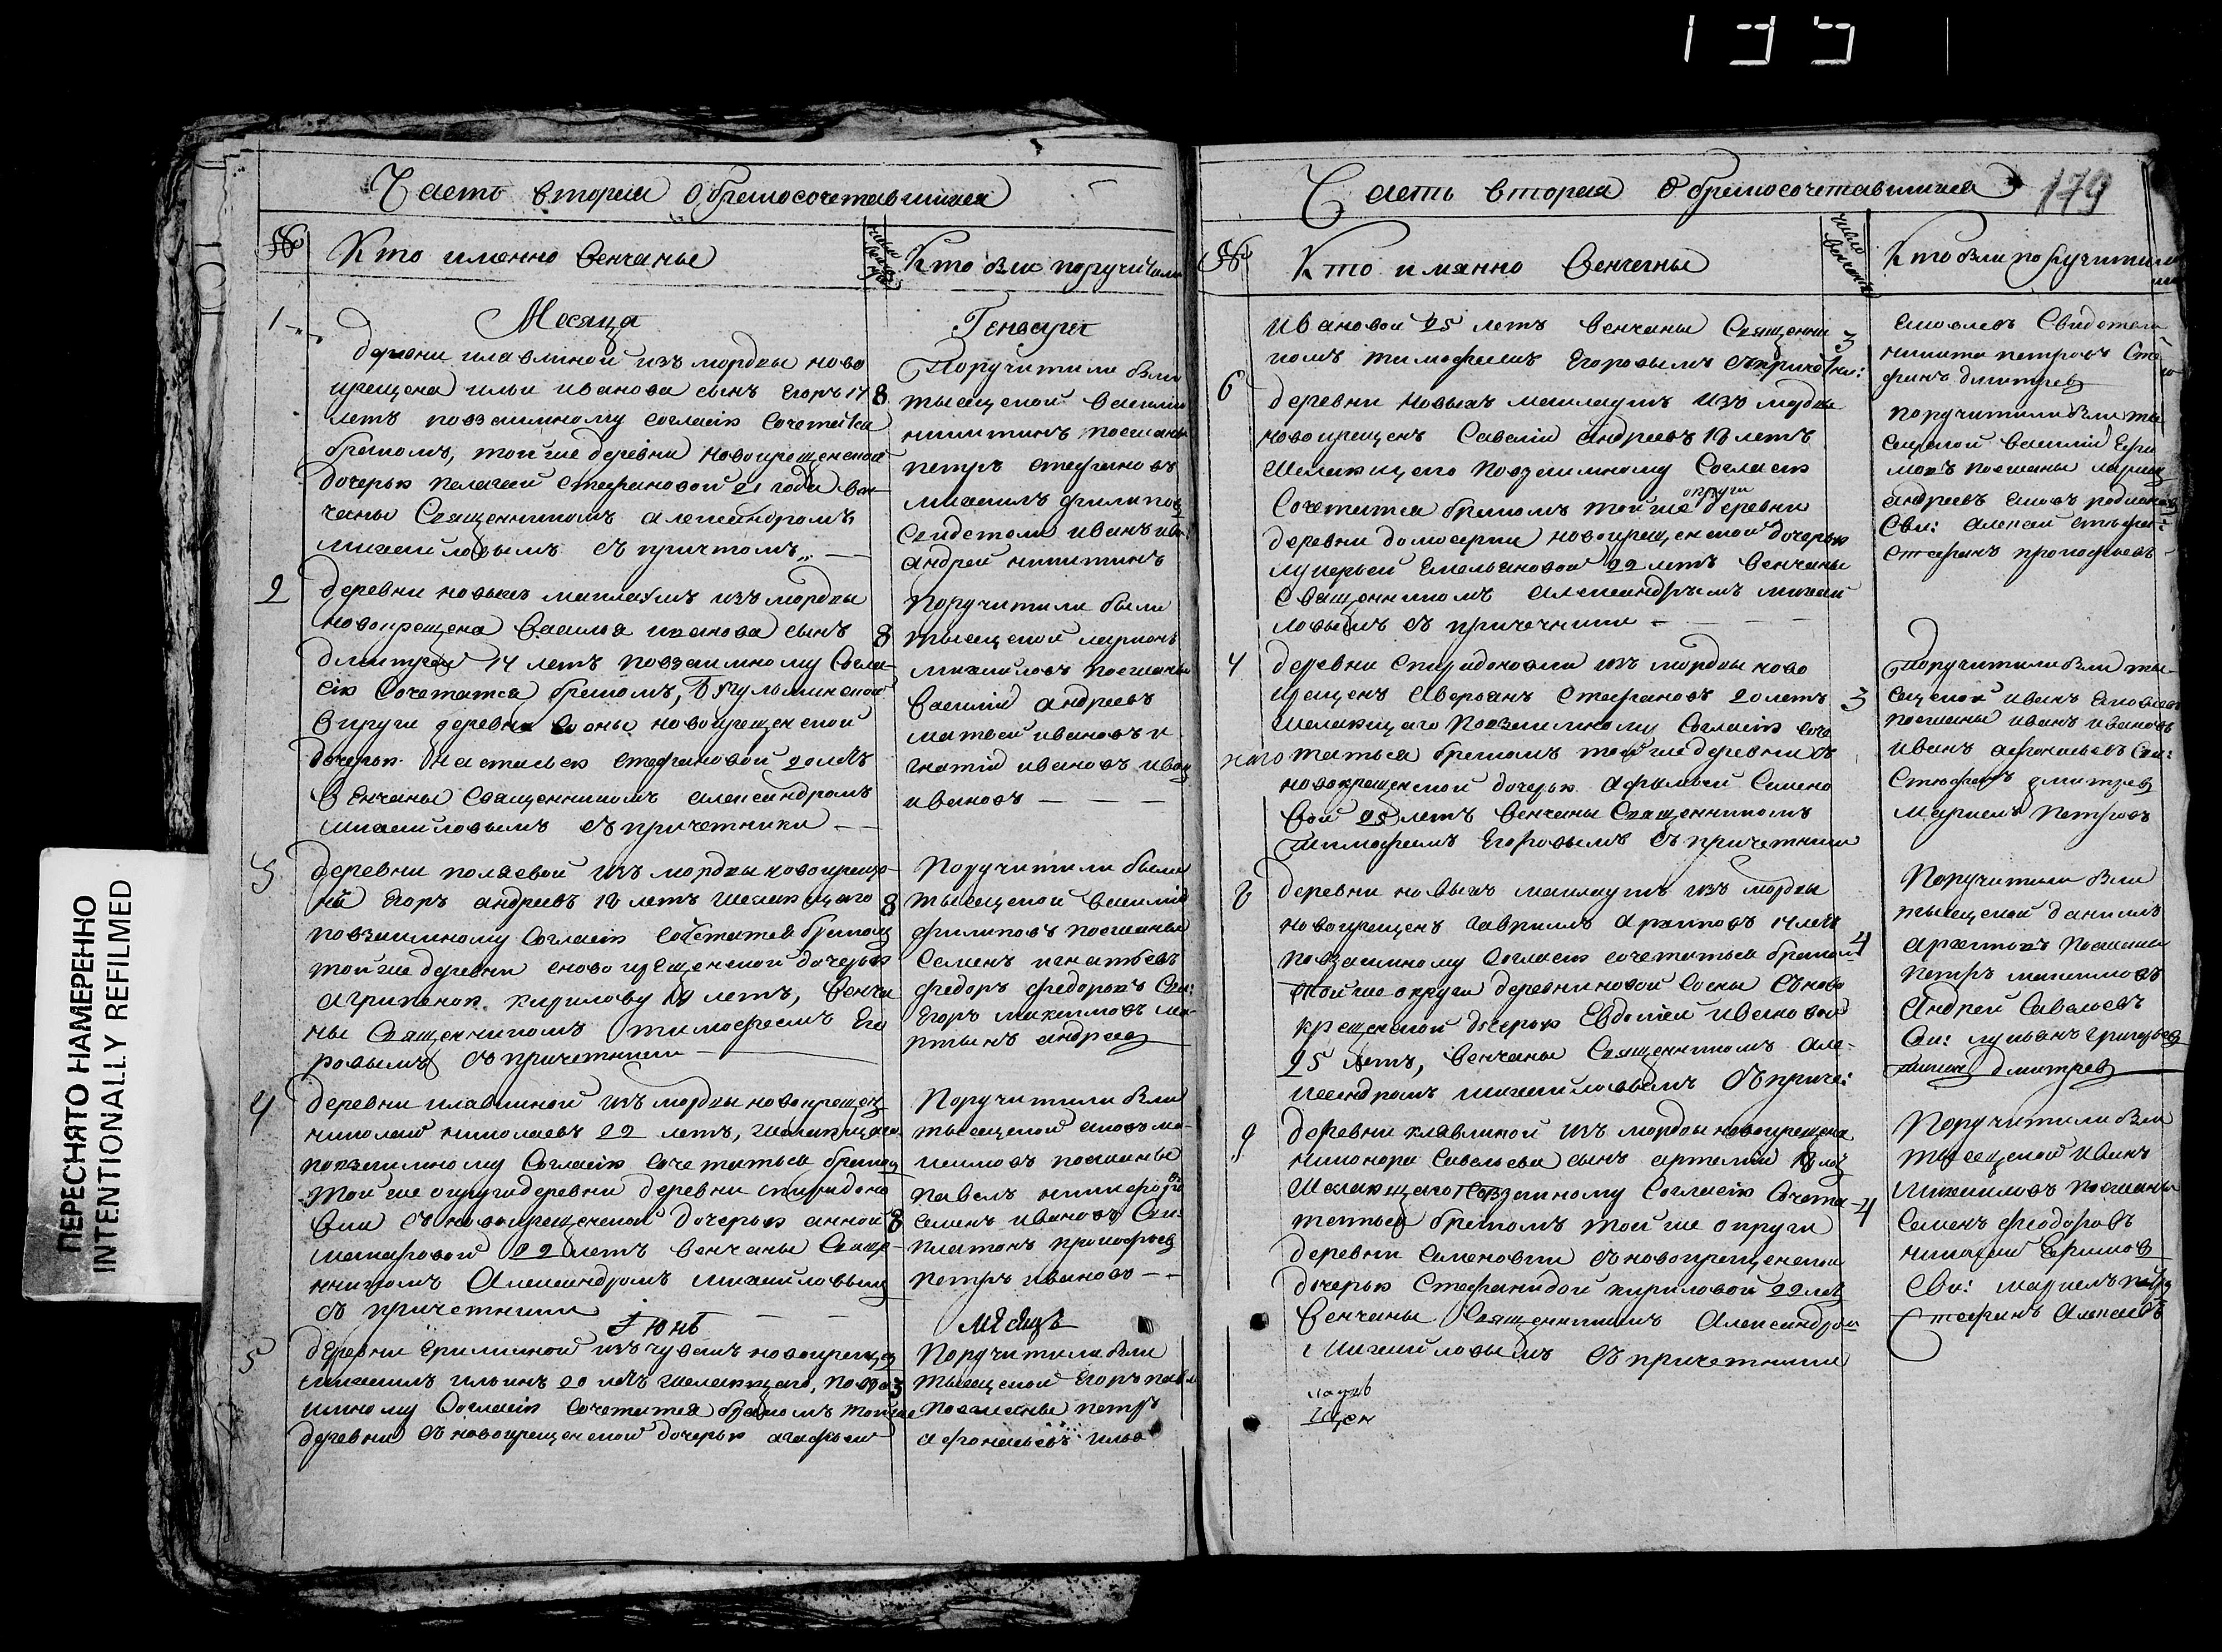 195
Часть вторая о бракосочетавшихся
№
Кто именно венчаны
Кто были поручители
1
Месяца
Генваря
деревни клавлиной изъ мордвы ново
крещена ильи иванова сынъ Егоръ 17
летъ повзаимному согласiю сочетался
бракомъ, той же деревни новокрещенской
дочерью пелагеей стефановой 21 года вен
чаны Священникомъ александромъ
михайловымъ съ причтомъ
8
Поручители были
тысецкой василий
никитинъ поежаны
петръ стефановъ
михаилъ филипов
Свидетели иванъ ива:
андрей никитинъ
2
деревни новыхъ маклаушъ изъ мордвы
новокрещена василья иванова сынъ
дмитрей 17 летъ повзаимному Согла
сiю Сочетатса бракомъ, Бугульминской
округи деревни Сосны новокрещенской
дочерью настасьею стефановой 20 летъ
венчаны Священникомъ александромъ
михайловымъ съ причетники
8
Поручители были
тысецкой ларионъ
михайловъ поежаны
василiй андреевъ
матвей ивановъ и
гнатiй ивановъ иван
ивановъ
3
деревни поляевой изъ мордвы новокреще
ный Егоръ андреевъ 18 летъ желающаго
повзаимному Согласiю Сочетатса браком
той же деревни сновокрещенской дочерью
агрипеною кирилову 19 летъ, венча
ны Священникомъ тимофеемъ Его
ровымъ съ причетники
8
Поручители были
тысецкой василiй
филиповъ поежаны
Семенъ игнатьевъ
федоръ федоровъ Сви:
Егоръ максимовъ ма
ртынъ андреев
4
деревни клавлиной изъ мордвы новокрещен
николай николаевъ 22 летъ, желающаго
повзаимному Согласiю Сочетатьса браком
той же округи деревни деревни спиридоно
вки съ новокрещенской дочерью анной
макаровой 22 летъ венчаны Свяще
нникомъ Александромъ михайловым
съ причетники
8
Поручители были
тысецкой яковъ ма
ксимовъ поежаны
павелъ никифоро
семенъ ивановъ Сви:
платонъ прокофьев
петръ ивановъ
Iюнь
Месяцъ
5
деревни ерилкиной изъ чувашъ новокрещен
михаилъ ильинъ 20 летъ желающаго, повза
имному Согласiю Сочетатса бракомъ той же
деревни съ новокрещенской дочерью агафьей
3
Поручители были
тысецкой Егоръ павл
поежаны петръ
афонасьевъ илья
Часть вторая о бракосочетавшихся
179
№
Кто имянно венчаны
Кто были поручители
Ивановой 25 летъ венчаны Священни
комъ тимофеемъ Егоровымъ съ приче
3
яковлевъ Свидетели
никита петровъ Сте
фанъ дмитрев
6
деревни новыхъ маклаушъ изъ мордвы
новокрещенъ Савелiй андреевъ 18 летъ
желающаго повзаимному Согласiю
Сочетатса бракомъ той же округи деревни
деревни домосерки новокрещенской дочерью
лукерьей Емельяновой 22 летъ венчаны
Священникомъ александромъ михай
ловымъ съ причетники
поручители были ты
сецкой василiй Ефи
мовъ поежаны ларион
андреевъ яковъ родионов
Сви: алексей стефа:
стефанъ прокофьевъ
7
деревни Спиридоновки изъ мордвы ново
крещенъ Аверьянъ стефановъ 20 летъ
желающаго повзаимному Согласiю соче
татьса бракомъ той же деревни съ
новокрещенской дочерью афимьей Семено
вой 25 летъ венчаны Священникомъ
тимофеемъ Егоровымъ съ причетники
3
Поручители были ты
сецкой иванъ яковлев
поежаны иванъ ивановъ
иванъ афонасьевъ Сви:
Стефанъ дмитрев
маркелъ петровъ
8
деревни новыхъ маклаушъ изъ мордвы
новокрещенъ гаврилъ архиповъ 17 летъ
повзаимному Согласiю сочетатьса браком
той же округи деревни новой Сосны съ ново
крещенской дочерью Евдокiей ивановой
25 летъ, венчаны Священникомъ але
ксандромъ михайловымъ съ приче:
4
Поручители были
тысецкой данилъ
архиповъ поежаны
петръ максимовъ
Андрей Савельевъ
Сви: лукьянъ григорьев
дмитрев
9
деревни клавлиной изъ мордвы новокрещена
никонора Савельева сынъ артемiй 18 лет
желающаго повзаимному Согласiю Сочета
татьса бракомъ той же округи
деревни Семеновки съ новокрещенской
дочерью Стефанидой кириловой 22 лет
венчаны Священникомъ Александром
михайловымъ съ причетники
4
Поручители были
тысецкой иванъ
михайловъ поежаны
Семенъ феодоровъ
николай Ефимов
Сви: маркелъ петров
Стефанъ Алексеевъ
ПЕРЕСНЯТО НАМЕРЕННО
INTENTIONALLY REFILMED